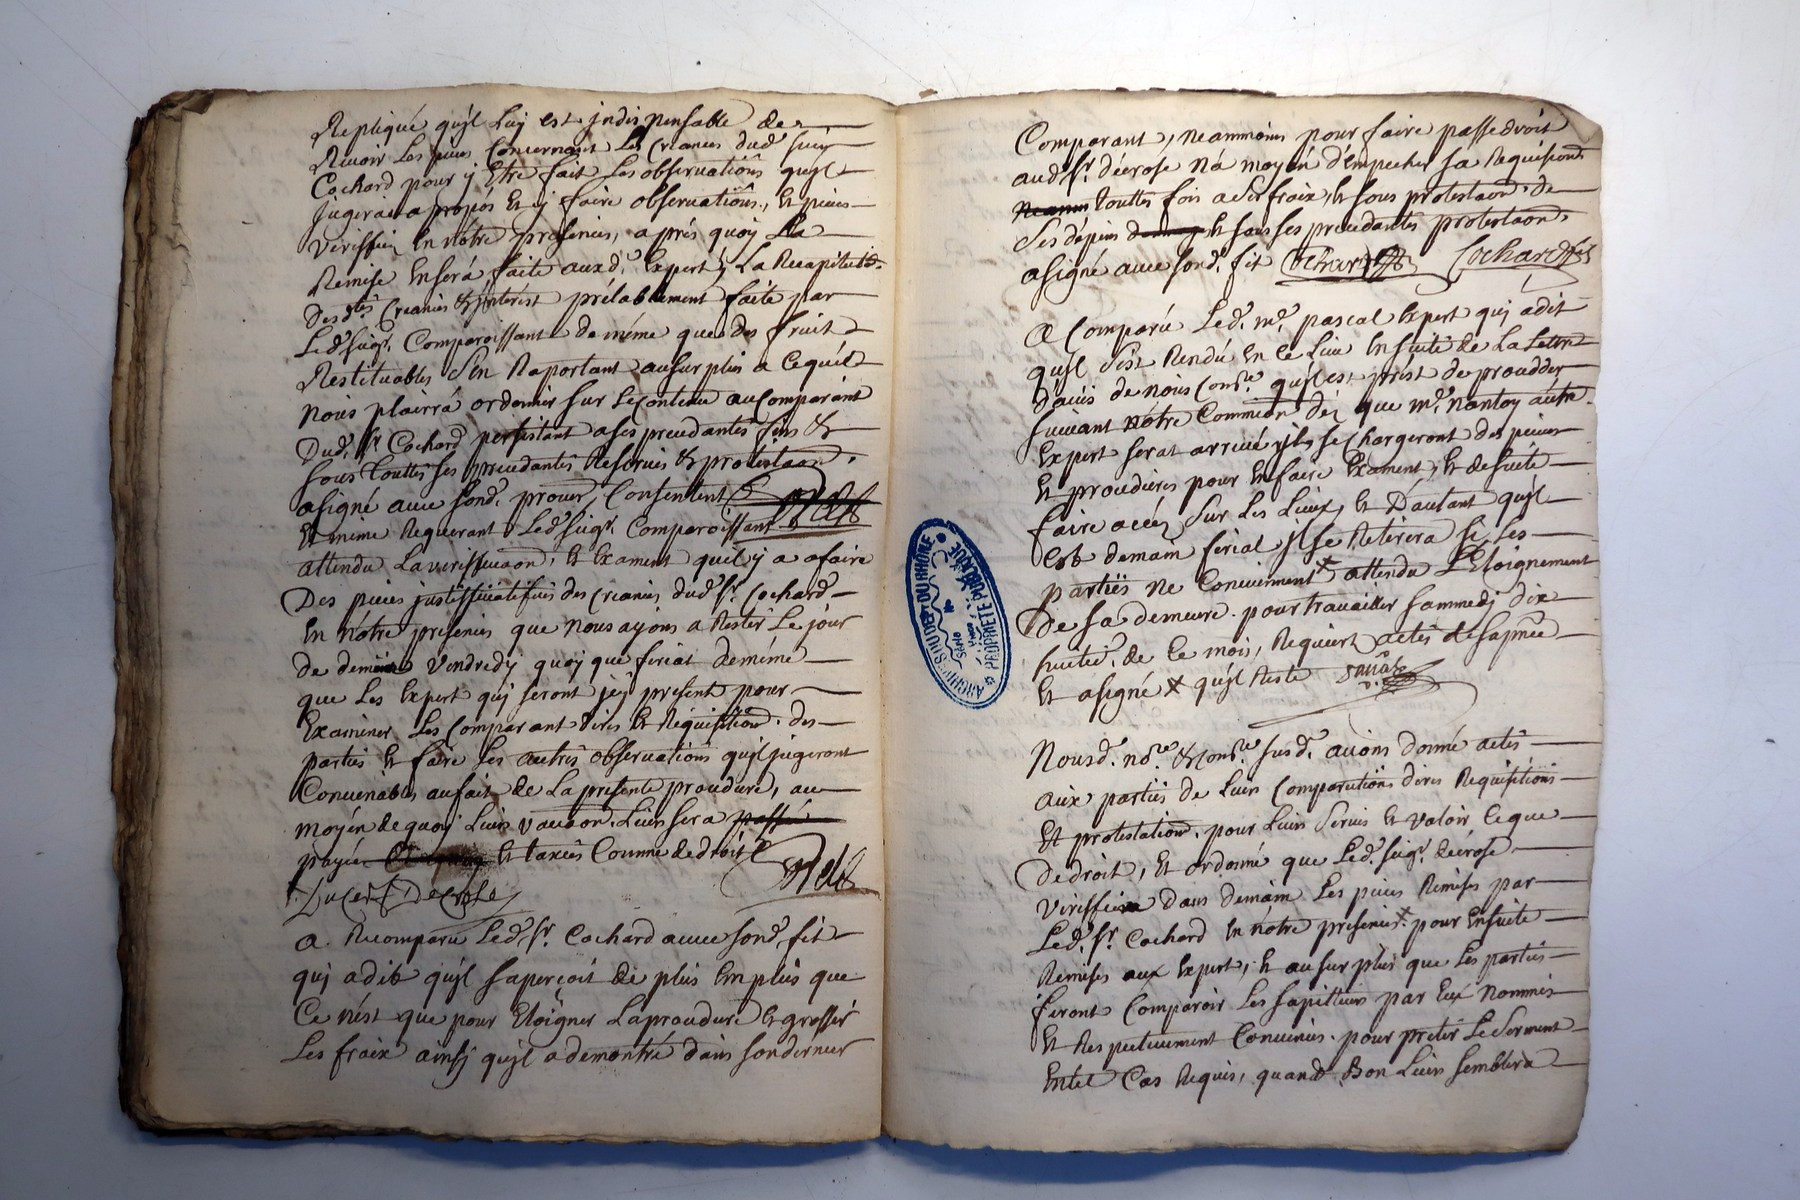 Repliqué quýl Luý est jndispensable de
Reuoir Les pieces Concernant Les Creances dud. sieur
Cochard pour ý Etre fait Les obseruations quýl
jugera apropos Et ý faire obseruations, Et pieces
Veriffier En nôtre presences, aprés quoý La
Remise Enserá faite auxd. Experts La Recapitulaõn
desdtes Creances & jnterest prélablement faite par
Led. seigr. Comparoissant de méme que des fruit
Restituables S'En Raportant ausurplus a Cequil
nous plairrá ordonner sur Lecontenu auComparant
Dud. sr. Cochard persistant ases precedantes fins &
sous Touttes ses precedantes Reserues & protestaon.
asigné auec sond. procur, Consentent
Et méme Requerant Led. seigr. Comparoissant
attendu La veriffiucaon, Et Exament quil ý a afaire
Des pieces justifficatifues des Creances dud. sr. Cochard
En nôtre presences que Nous aýons a Rester Le jour
de demain Vendredý quoý que ferial deméme
que Les Expert quý seront jcý present pour
Examiner Les Comparant dires Et Requisition. des
parties Et faire Les autres obseruations quýl jugeront
Conuenables aufait de La presente procedure, au
moýen de quoý Leurs vacaon. Leurs sera passé
payée Et taxées Comme dedroit
Lucert Decrose
a Recomparu Led. sr. Cochard auec sond. fit
quý adit quýl saperçoit de plus En plus que
Ce nést que pour Eloigner Laprocedure Et grossir
Les fraix ainsý quýl ademontré dans sondernier
Comparant, neammoins pour faire passedroit
aud. sr. décrose Ná moyén d'Empecher sa Requisiond
Neamm touttes fois asesfraix, Et sous protestaon. de
Ses depens Et sous ses precedantes protestaon.
asigné auec sond. fit Cochard Cochard fils
a Comparu Led. me. pascal Expert quý adit
quýl s'est Rendu En Ce Lieu En suite de La Lettre
dauis de nous Comre. quýl est prest de procedder
suiuant nôtre Commion déz que me. Nantoý autre
Expert serat arriué jls se Chargeront des pieces
Et procedures pour En faire Exament, Et desuite
faire accéz Sur Les Lieux, Et Dautant quýl
Est demain ferial jl se Retirera si Les
parties ne Conuiennent x attendu L'Eloignement
De sa demeure pour trauailler sammedý dix
huitie. de Ce mois, Requiert actes desapnce
Et asigné x quýl Reste
Nousd. nore. & Comre. susd. auons donné actes
aux parties de Leurs Comparutions dires Requisitions
Et protestation. pour Leurs Seruir Et valoir Ceque
Dedroit, Et ordonné que Led. seigr. décrose
Veriffiera Dans demain Les pieces Remises par
Led. sr. Cochard En nôtre presences x pour Ensuite
Remises aux Expert, Et ausurplus que Les parties
feront Comparoir Les sapiteurs par Eux Nommés
Et Respectiuement Conuenus. pour preter Le Serment
Entel Cas Requis, quand Bon Leurs semblera
ARCHIVES DU DEPT DU RHÔNE
PROPRIÉTÉ PUBLIQUE